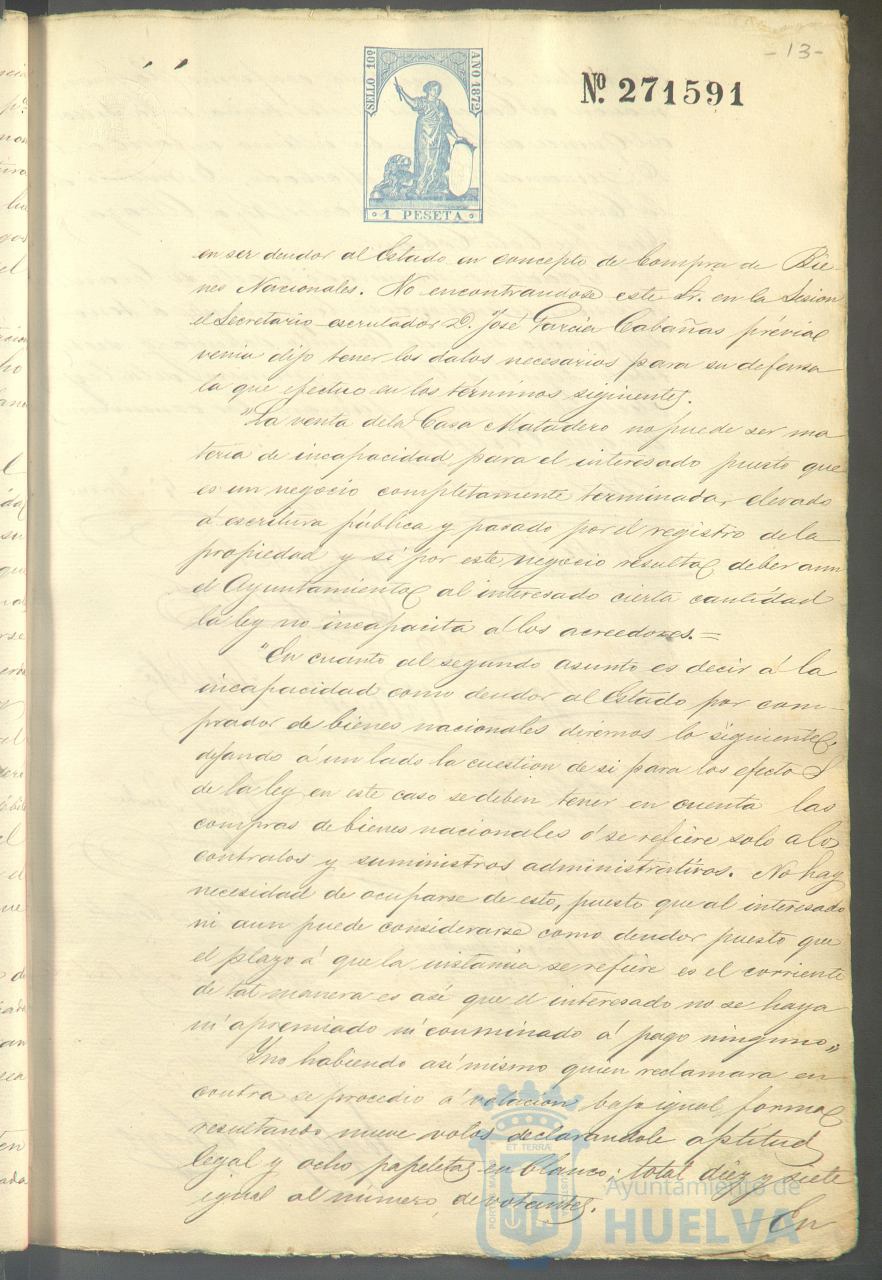 - 13 -
SELLO 10º
AÑO 1872
1 PESETA
Nº. 271591
en ser deudor al Estado en concepto de Compra de Bie-
nes Nacionales. No encontrandose este Sr. en la Sesion
el Secretario escrutador D. José Garcia Cabañas prévia
venia dijo tener los datos necesarios para su defensa
la que efectuo en los términos siguientes.
"La venta de la Casa Matadero no puede ser ma
teria de incapacidad para el interesado puesto que
es un negocio completamente terminado, elevado
á escritura pública y pasado por el registro de la
propiedad y si por este negocio resulta deber aun
el Ayuntamiento al interesado cierta cantidad
la ley no incapacita á los acreedores.=
"En cuanto al segundo asunto es decir á la
incapacidad como deudor al Estado por com-
prador de bienes nacionales diremos lo siguiente,
dejando á un lado la cuestion de si para los efectos
de la ley en este caso se deben tener en cuenta las
compras de bienes nacionales ó se refiere solo a los
contratos y suministros administrativos. No hay
necesidad de ocuparse de esto, puesto que al interesado
ni aun puede considerarse como deudor puesto que
el plazo á que la instancia se refiere es el corriente
de tal manera es asi que el interesado no se haya
ni apremiado ni conminado á pago ninguno„
Y no habiendo asi mismo quien reclamara en
contra se procedio á votacion bajo igual forma
resultando nueve votos declarandole aptitud
legal y ocho papeletas en blanco; total diez y siete
igual al número de votantes.
En
PORTUS MARIS
ET TERRA
CUSTODIA
Ayuntamiento de
HUELVA